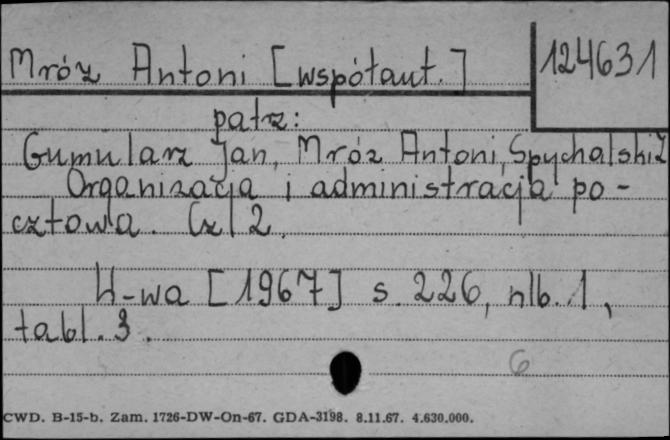 Mróz Antoni [współaut.] 124631
patrz:
Gumularz Jan, Mróz Antoni, Spychalski Z
Organizacja i administracja po-
cztowa. Cz 2.
W-wa [1967] s. 226, nlb. 1,
tabl. 3.
6
CWD. B-15-b. Zam. 1726-DW-On-67. GDA-3198. 8.11.67. 4.630.000.